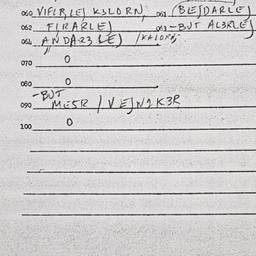 060 VIFIRLEJ K3LORN, 061 (BEJDARLEJ
062 FIRARLEJ 063 -BUT AL3RLEJ
064 ANDAR3LEJ /KALORN,
070 0
080 0
-BUT
090 ME5R / VEJN2K3R
100 0